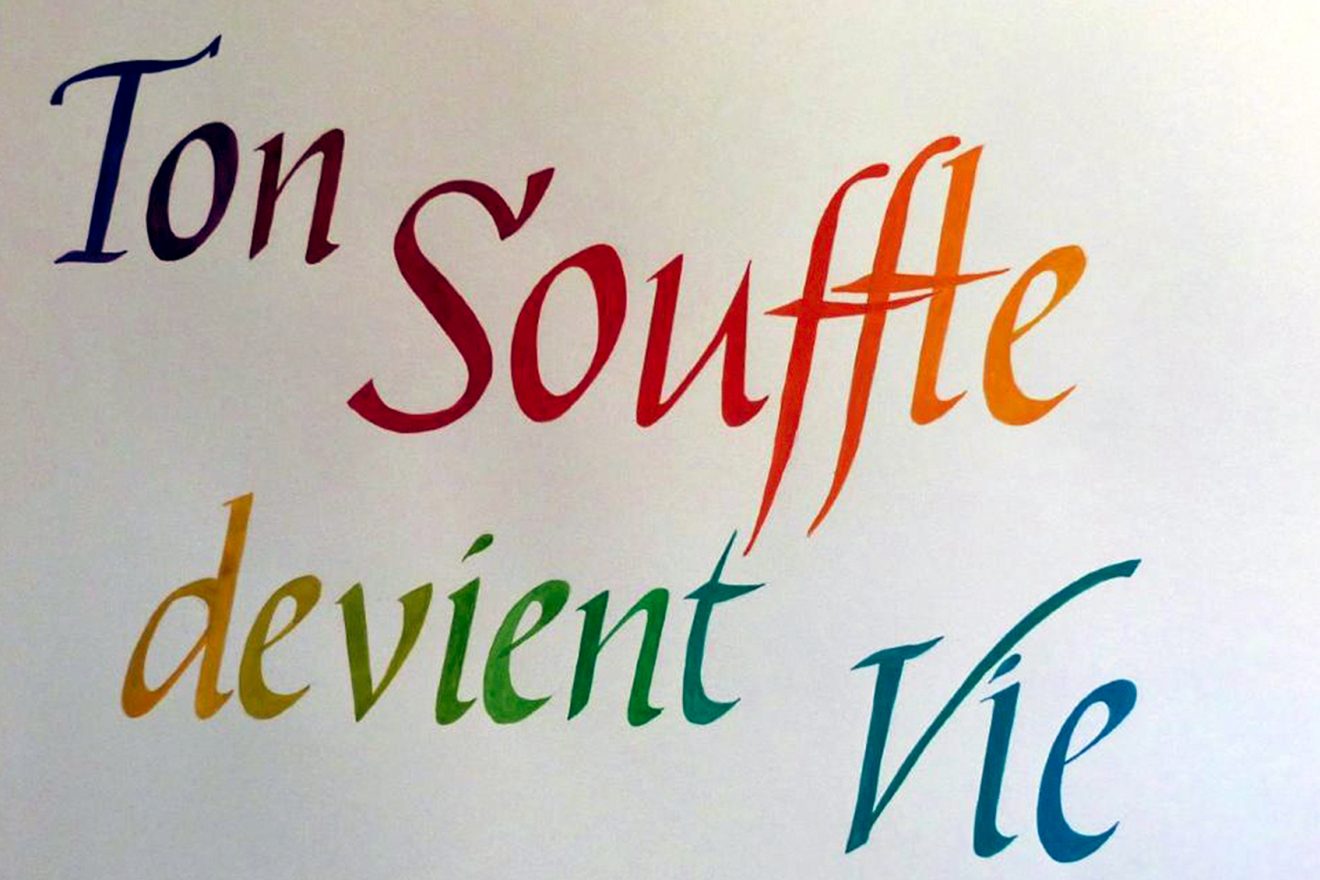 Ton
Souffle
devient
Vie